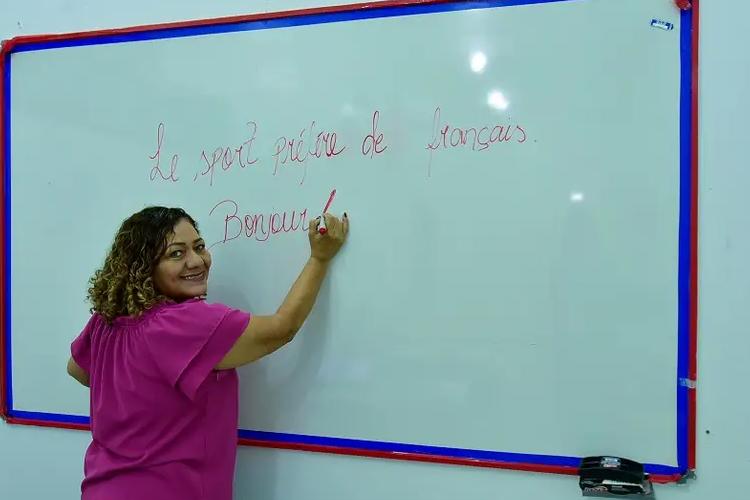 Le sport préfère de français.
Bonjour!